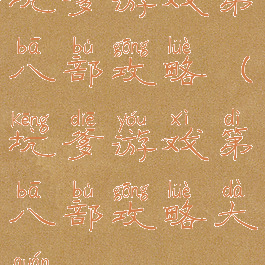 坑爹游戏第
bā bù gōng lüè
八部攻略（
kēng diē yóu xì dì
坑爹游戏第
bā bù gōng lüè dà
八部攻略大
quán